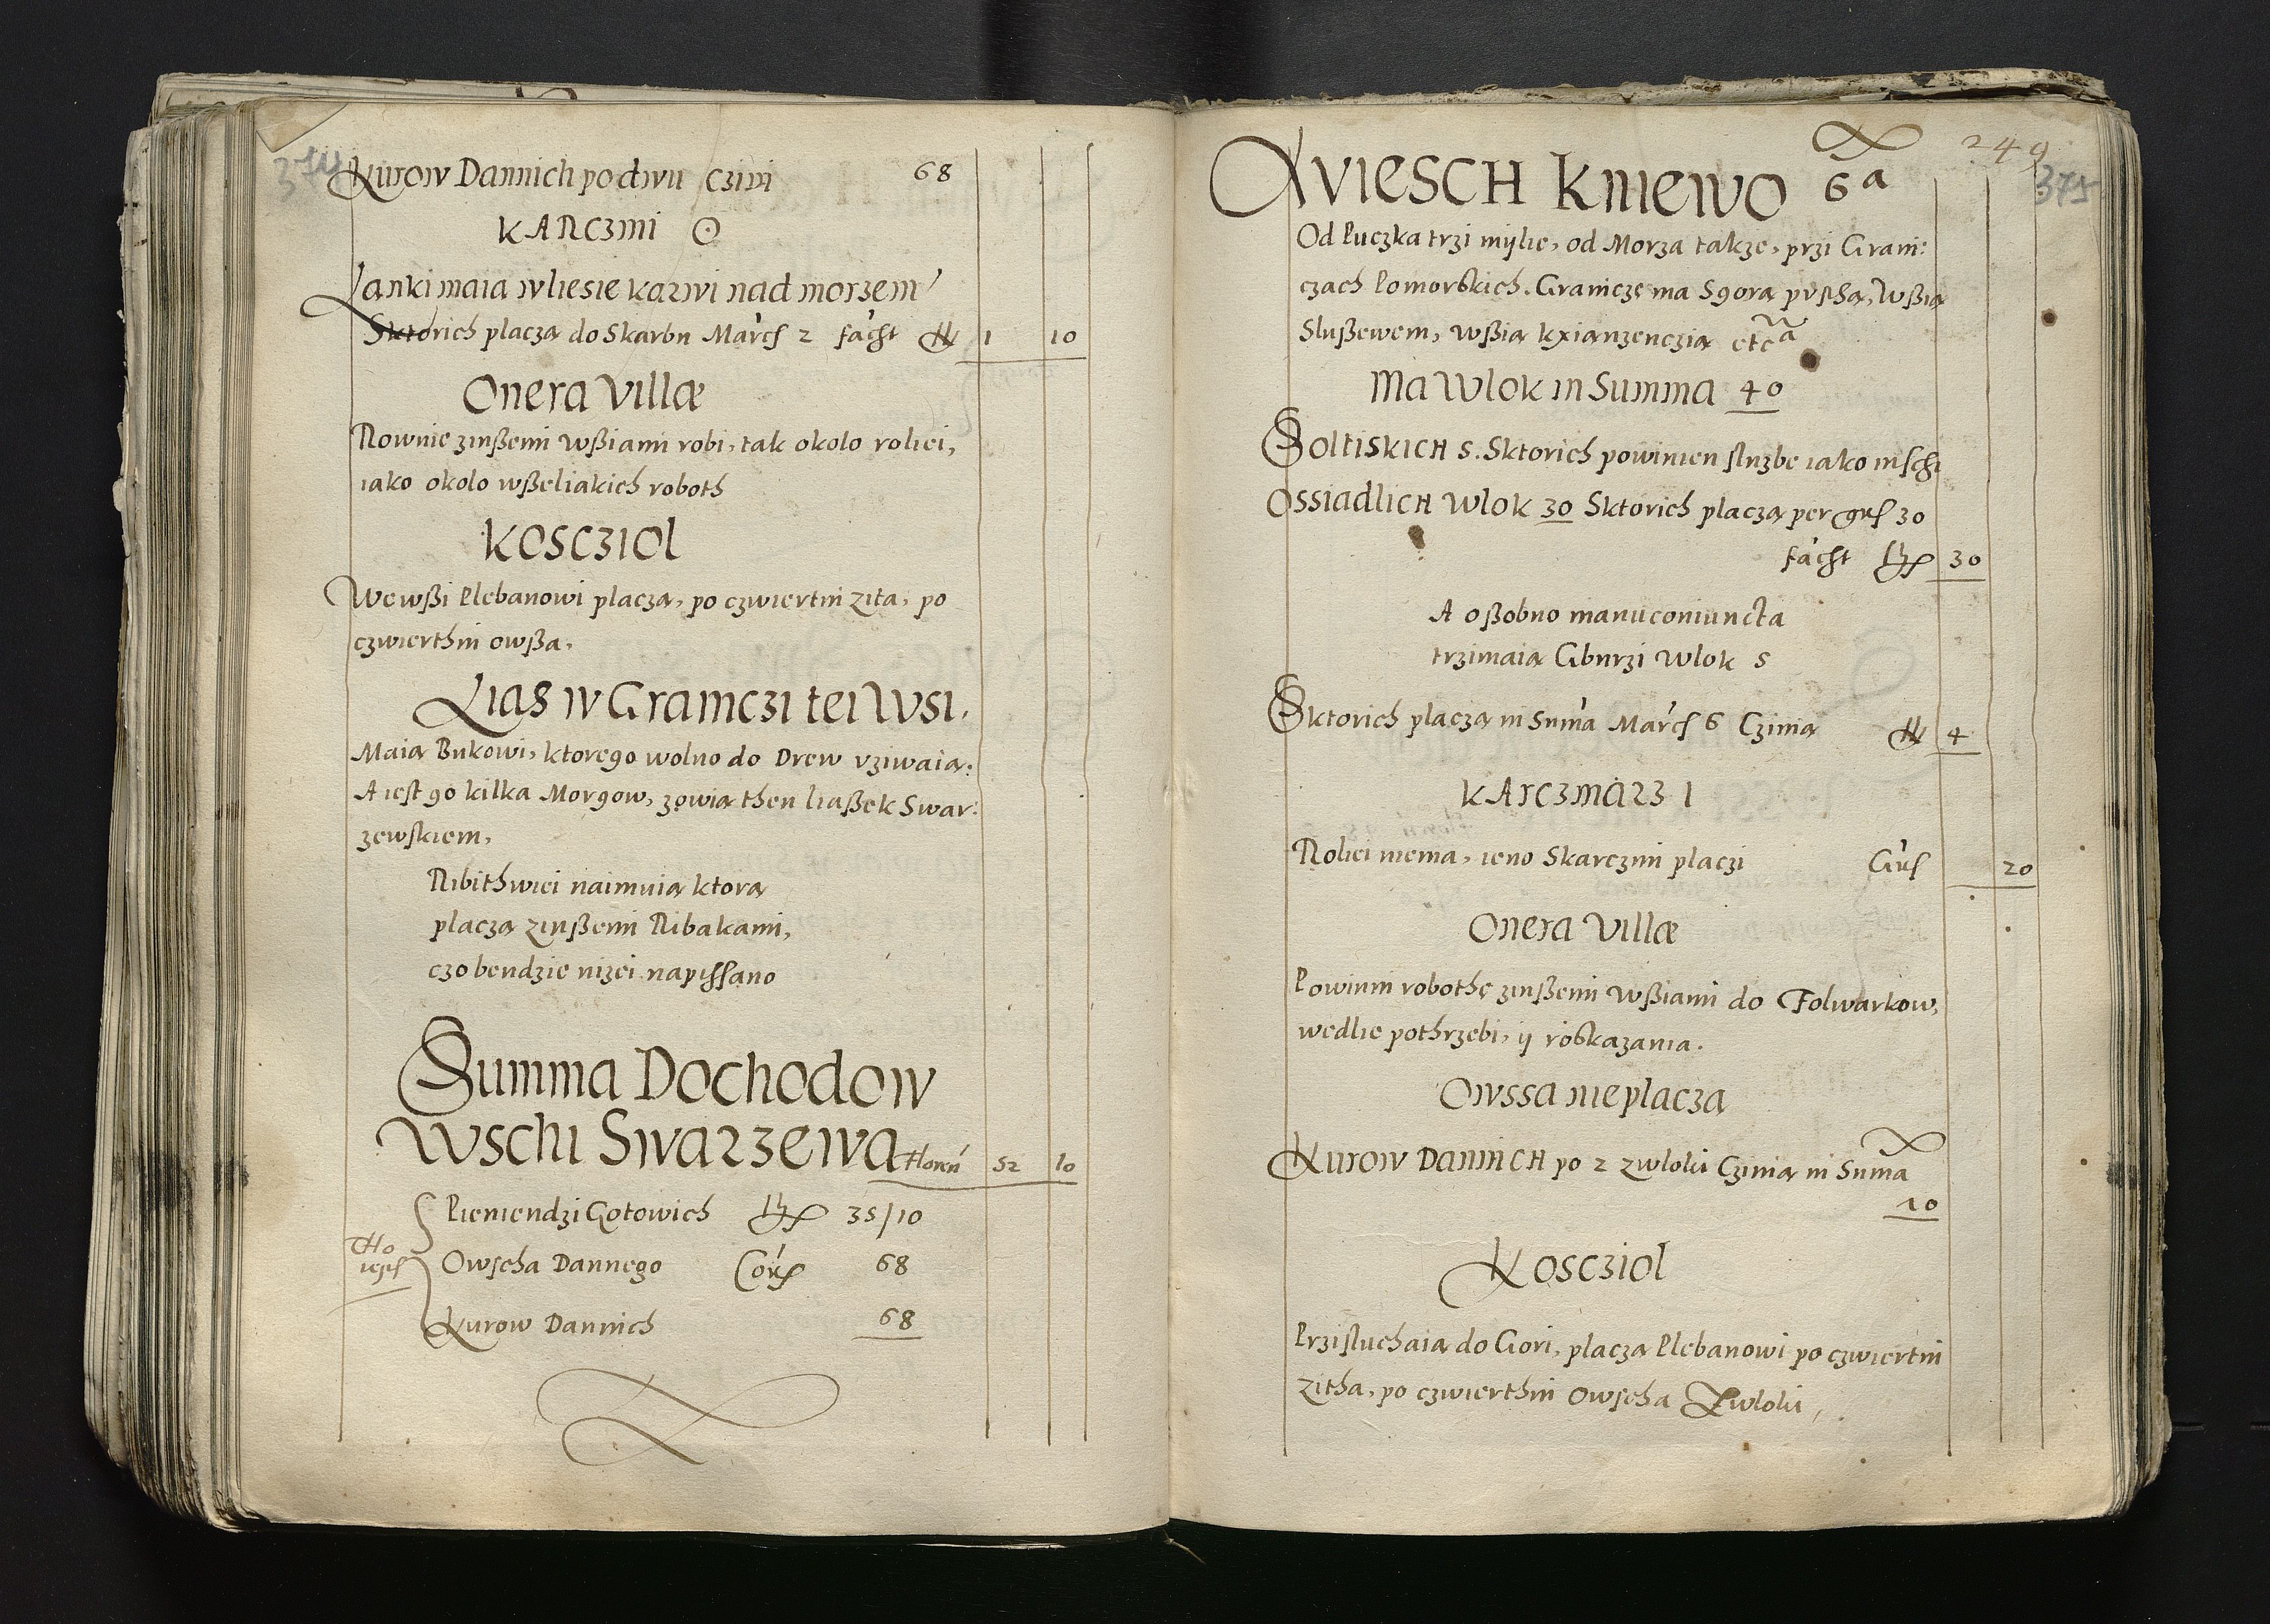 374
Kurow Dannich po dwu czini 68
KARCZMI
Lanki maia w liesie karwi nad morzem
Sktorich placzą do Skarbu Marcs 2 facht 1 10
Onera Villæ
Rownie z inßemi wßiami robi, tak okolo roliei,
iako okolo wßeliakich roboth
KOSCZIOL
We wßi Plebanowi placzą, po czwiertni zita, po
czwierthni owßa.
Lias w Graniczi tei Wsi.
Maią Bukowi, ktorego wolno do Drew vziwaią:
A iest go kilka Morgow, zowią then liaßek Swar:
zewskiem,
Ribithwiei naimuią ktorą
placzą z inßemi Ribakami,
czo bendzie nizei napissano
Summa Dochodow
Wschi Swarzewa floren 52 10
Pieniendzi Gotowich 35/10
Tho
iest
Owscha Dannego Cors 68
Kurow Dannich 68
249
375
WIESCH KNIEWO 6a
Od Puczka trzi mijlie, od Morza takze, przi Grani:
czach Pomorskich. Granicze ma Sgorą puscżą, Wßią
Slußewem, wßią kxianzenczią etca
Ma Wlok in Summa 40
SOLTISKICH 5. Sktorich powinien sluzbe iako inschi
OSSIADLICH Wlok 30 Sktorich placzą per grs 30
facht 30
A oßobno manu coniuncta
trzimaią Gburzi Wlok 5
Sktorich placzą in Suma Marcs 6 Czinią 4
KARCZMARZ 1
Roliei niema, ieno Skarczmi placzi Grs 20
Onera Villæ
Powinni robothę z inßemi Wßiami do Folwarkow,
wedlie pothrzebi, ij roskazania.
Owssa nie placzą
Kurow DANNICH po 2 z wloki Czinią in Suma
10
Koscziol
Przisluchaią do Gori, placzą Plebanowi po czwiertni
zitha, po czwierthni Owscha Zwloki,